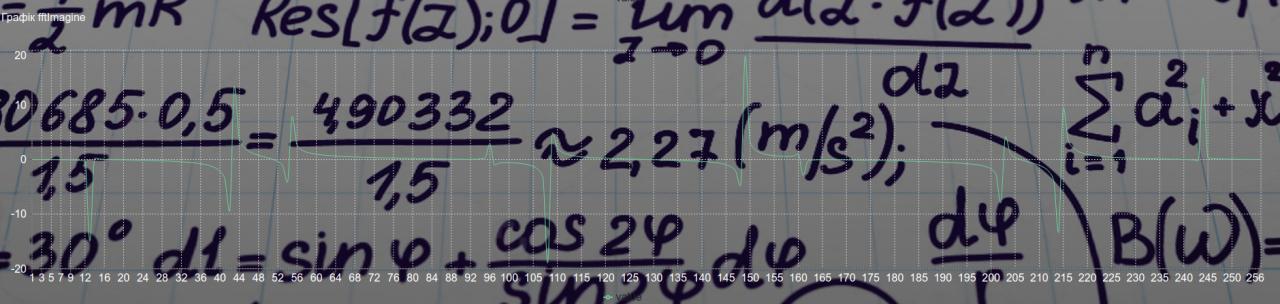 Графік fftImagine
= 1/2 mR Res[f(z);0] = lim z→0 d(z·f(z)) / dz
20
10
0
-10
-20
30685·0,5 / 1,5 = 4,90332 / 1,5 ≈ 2,27 (m/s²);
n Σ i=1 a²i + x²
= 30° d1 = sin φ + cos 2φ / sin φ dφ
dφ
B(W) =
1 3 5 7 9 12 16 20 24 28 32 36 40 44 48 52 56 60 64 68 72 76 80 84 88 92 96 100 105 110 115 120 125 130 135 140 145 150 155 160 165 170 175 180 185 190 195 200 205 210 215 220 225 230 235 240 245 250 256